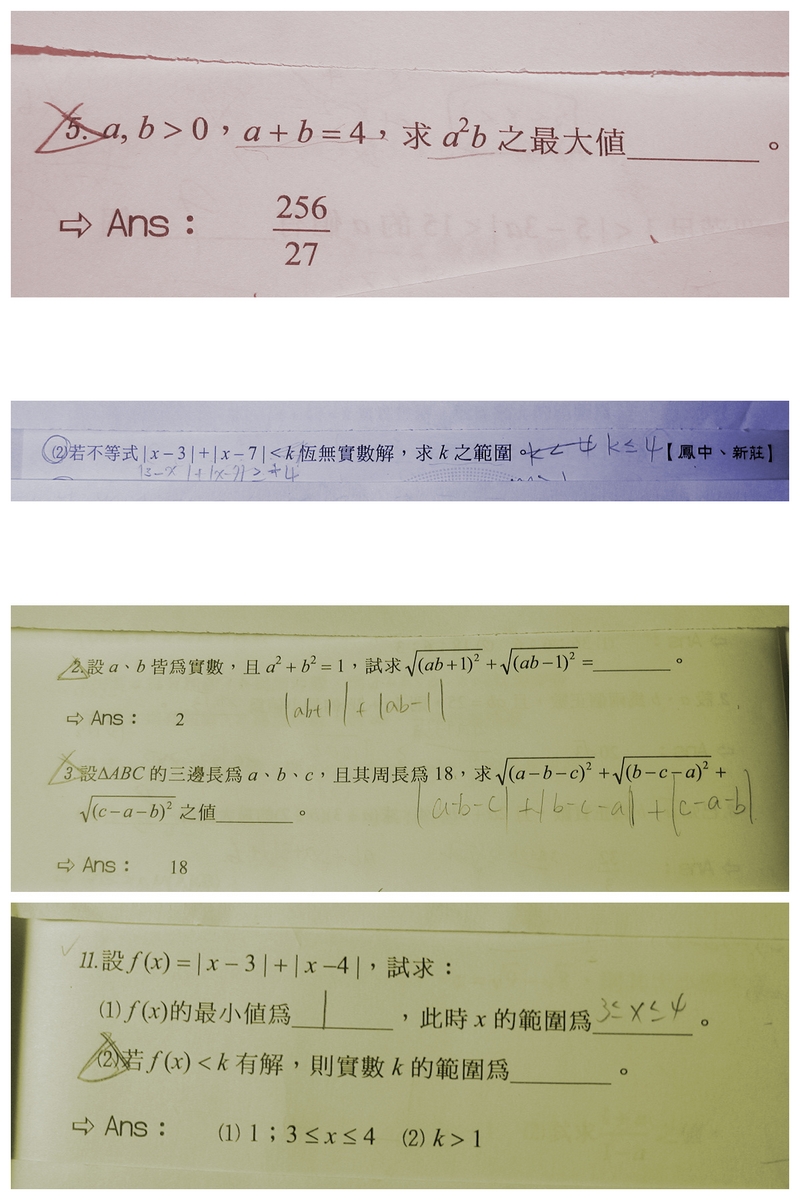 5. a, b > 0，a + b = 4，求 a²b 之最大值________。
⇨ Ans： 256/27
⑵若不等式 | x − 3 | + | x − 7 | < k 恆無實數解，求 k 之範圍。k < 4 k ≤ 4【鳳中、新莊】
|3−x|+|x−7| ≥ 4
2.設 a、b 皆為實數，且 a² + b² = 1，試求 √(ab+1)² + √(ab−1)² =________。
⇨ Ans： 2 |ab+1| + |ab−1|
3.設ΔABC 的三邊長為 a、b、c，且其周長為 18，求√(a−b−c)² + √(b−c−a)² +
√(c−a−b)² 之值________。 |a−b−c| + |b−c−a| + |c−a−b|
⇨ Ans： 18
11.設 f (x) = | x − 3 | + | x − 4 |，試求：
⑴ f (x)的最小值為 1 ，此時 x 的範圍為 3≤x≤4 。
⑵若 f (x) < k 有解，則實數 k 的範圍為________。
⇨ Ans： ⑴ 1；3 ≤ x ≤ 4 ⑵ k > 1